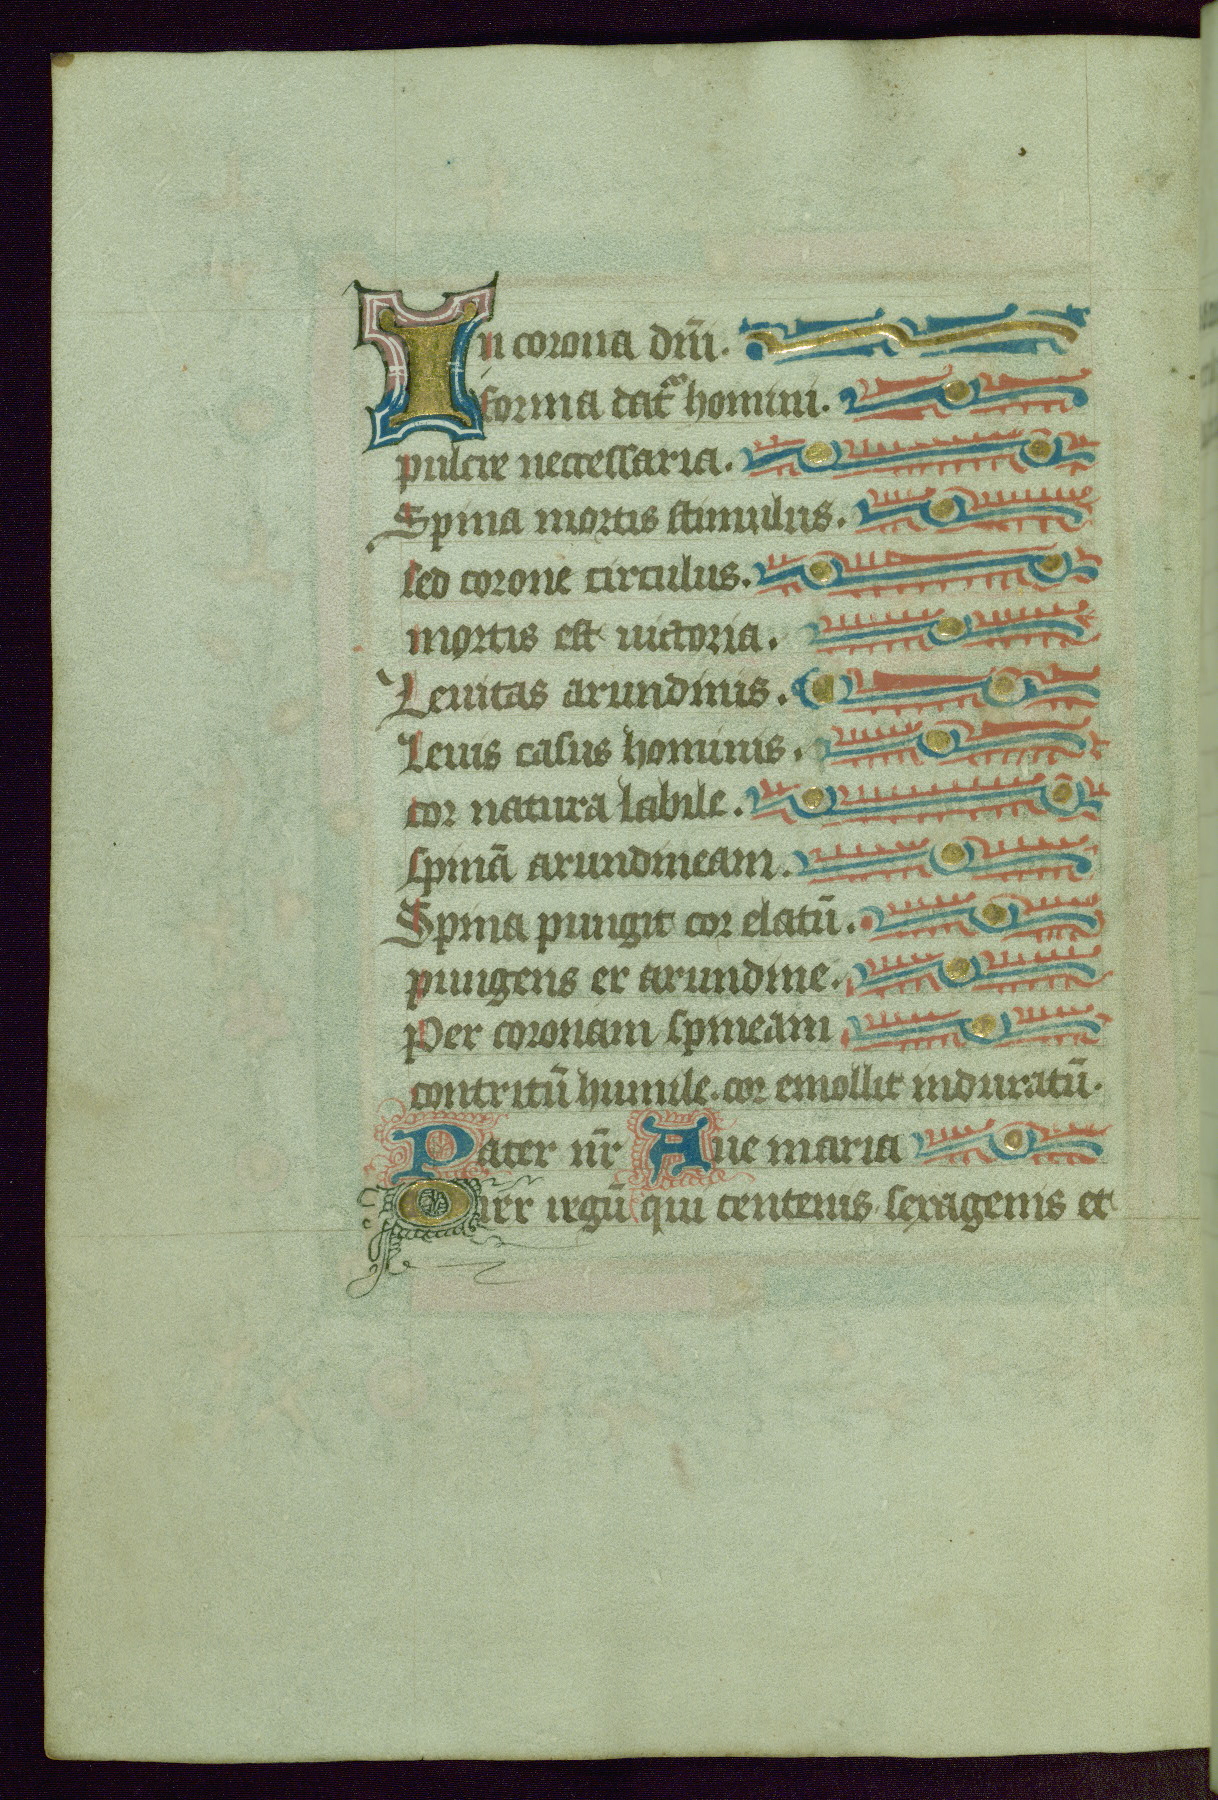 In corona dn̄i.
forma dat᷑ homini.
pulcre necessaria.
Spina mortis stimulus.
sed corone circulus.
mortis est uictoria.
Leuitas arundinis.
Leuis casus hominis.
cor natura labile.
spinā arundineam.
Spina pungit cor elatū.
pungens er arundine.
Per coronam spineam
contritū humile. cor emollit induratū.
Pater nr̄ Aue maria
qui centenis sexagenis et